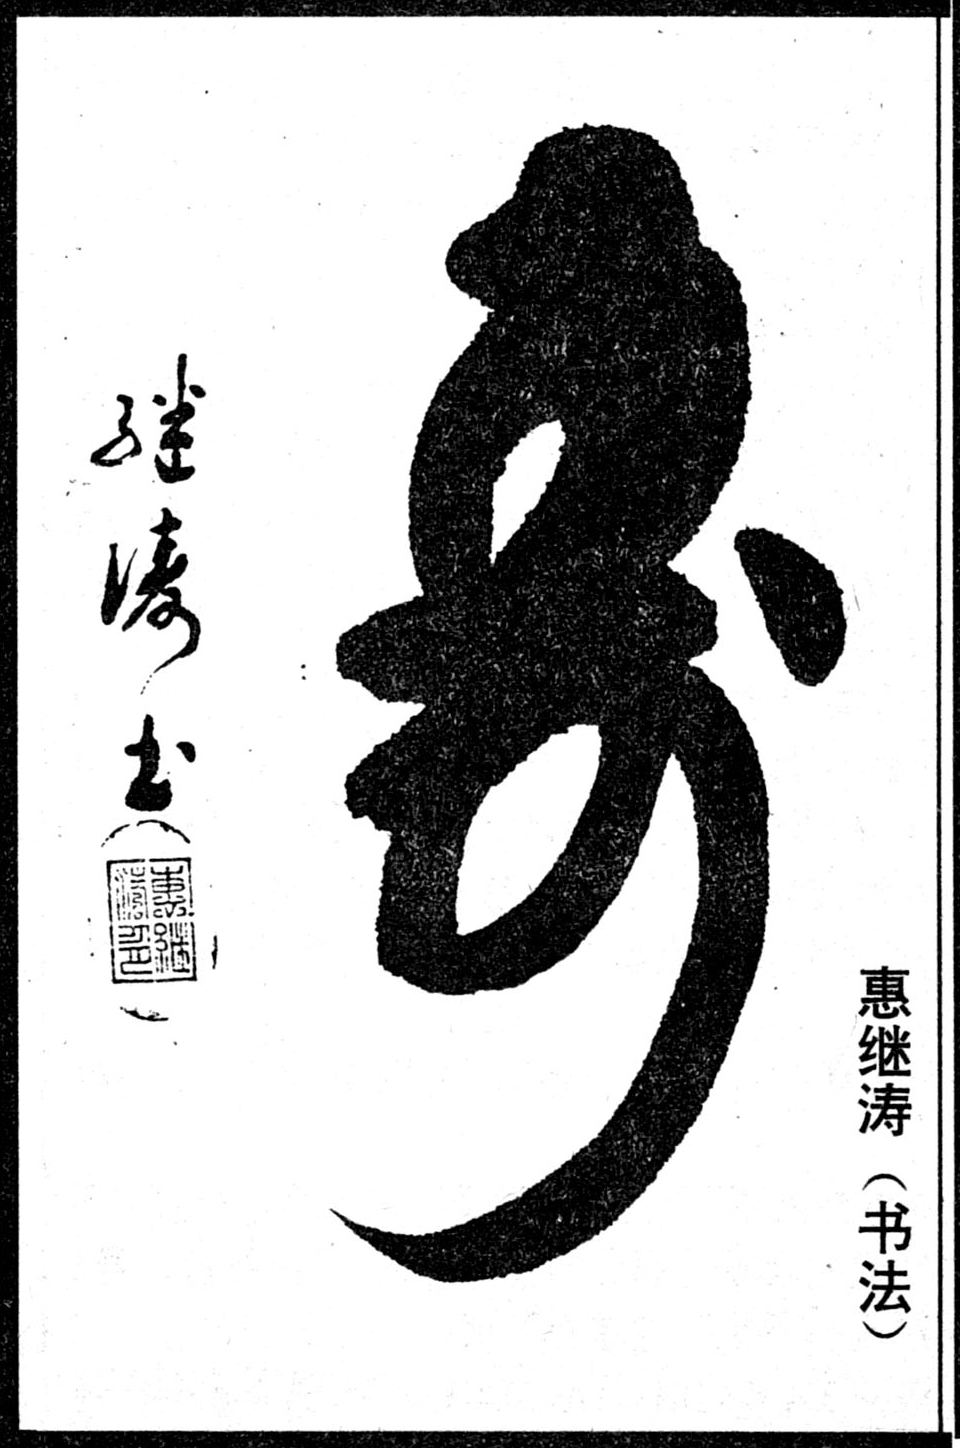 惠继涛（书法）
寿
继涛书
惠继涛印